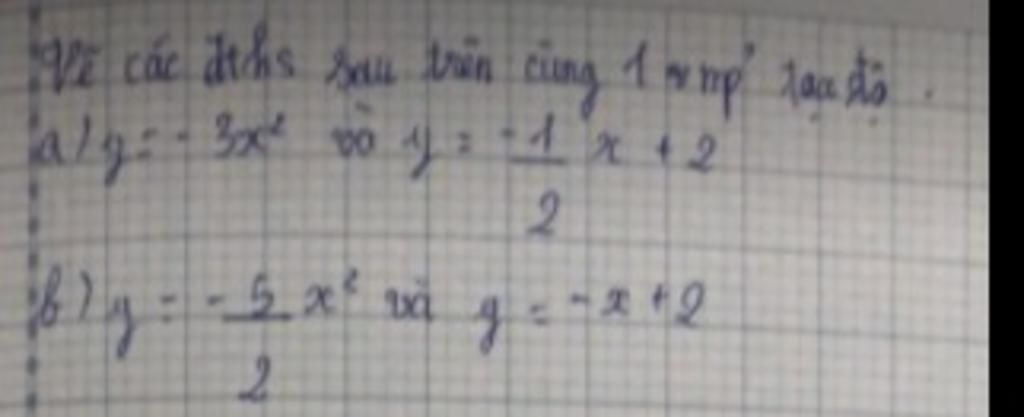 Vẽ các đths sau trên cùng 1 mp tọa độ.
a) y = -3x² và y = -1/2 x + 2
b) y = -5/2 x² và y = -x + 2